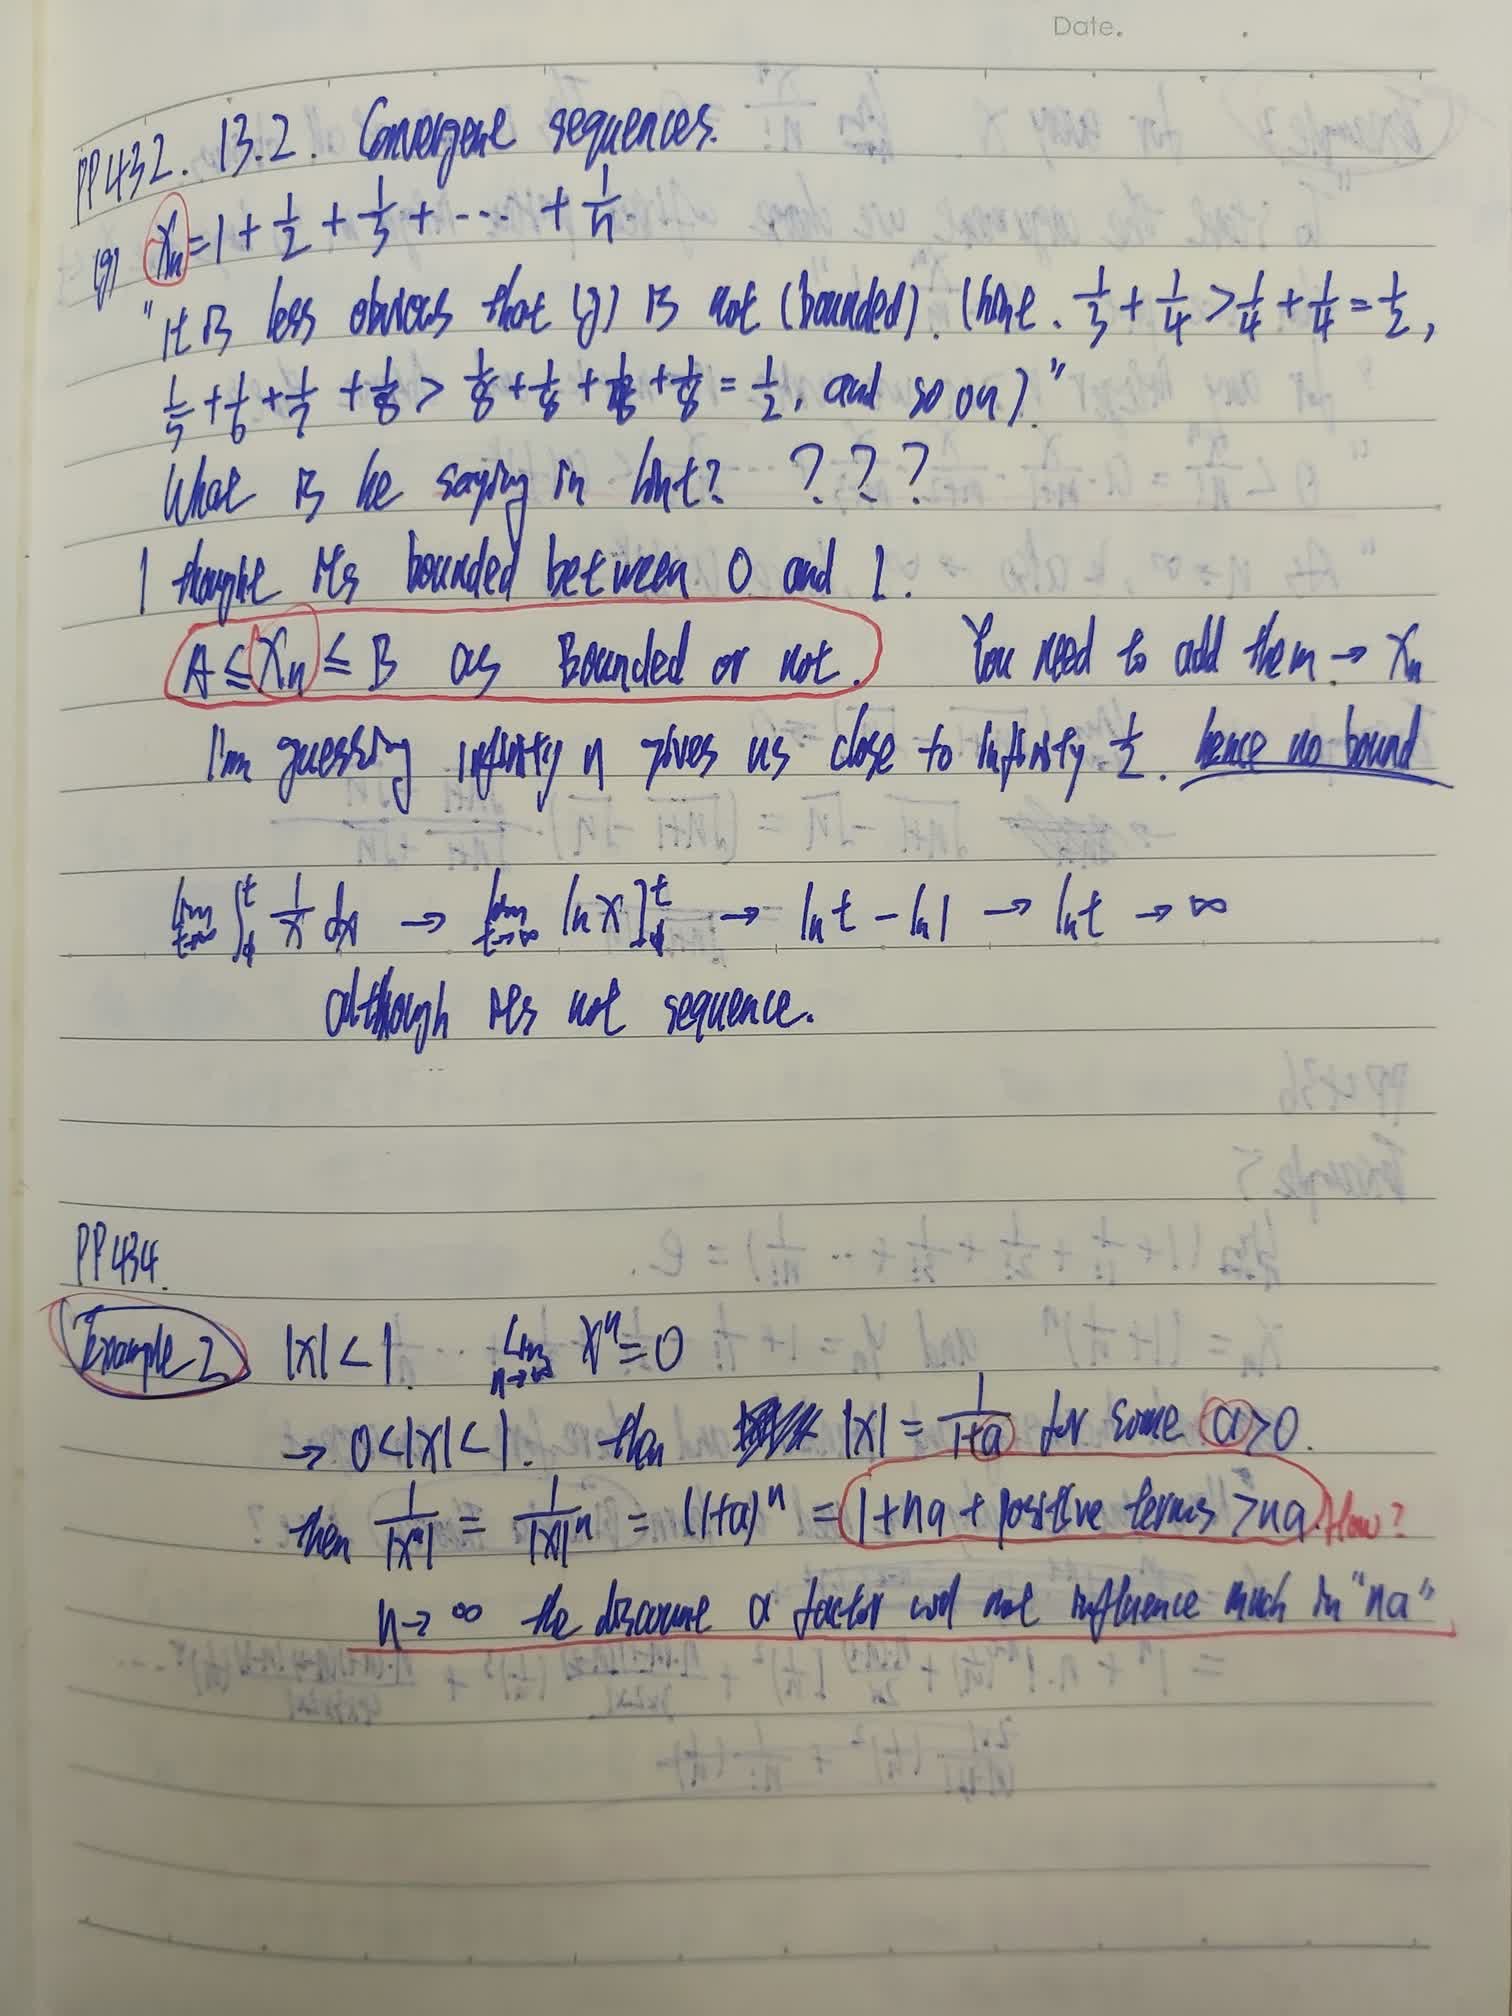 Date.
PP432. 13.2. Convergene sequences.
(g) Xn = 1 + 1/2 + 1/3 + ... + 1/n.
"It is less obvious that (g) is not (bounded). (hint. 1/3 + 1/4 > 1/4 + 1/4 = 1/2,
1/5 + 1/6 + 1/7 + 1/8 > 1/8 + 1/8 + 1/8 + 1/8 = 1/2, and so on)."
What is he saying in hint? ? ? ?
I thought it's bounded between 0 and 1.
A ≤ Xn ≤ B as Bounded or not. You need to add them → Xn
I'm guessing infinity n gives us close to infinity 1/2. hence no bound
lim t→∞ ∫₁ᵗ 1/x dx → lim t→∞ ln x]₁ᵗ → ln t - ln 1 → ln t → ∞
although it's not sequence.
PP434.
Example 2 |x| < 1. lim n→∞ xⁿ = 0
→ 0 < |x| < 1. then |x| = 1/(1+a) for some a > 0.
then 1/|xⁿ| = 1/|x|ⁿ = (1+a)ⁿ = 1 + na + positive terms > na. How?
n → ∞ the a factor will not influence much in "na"